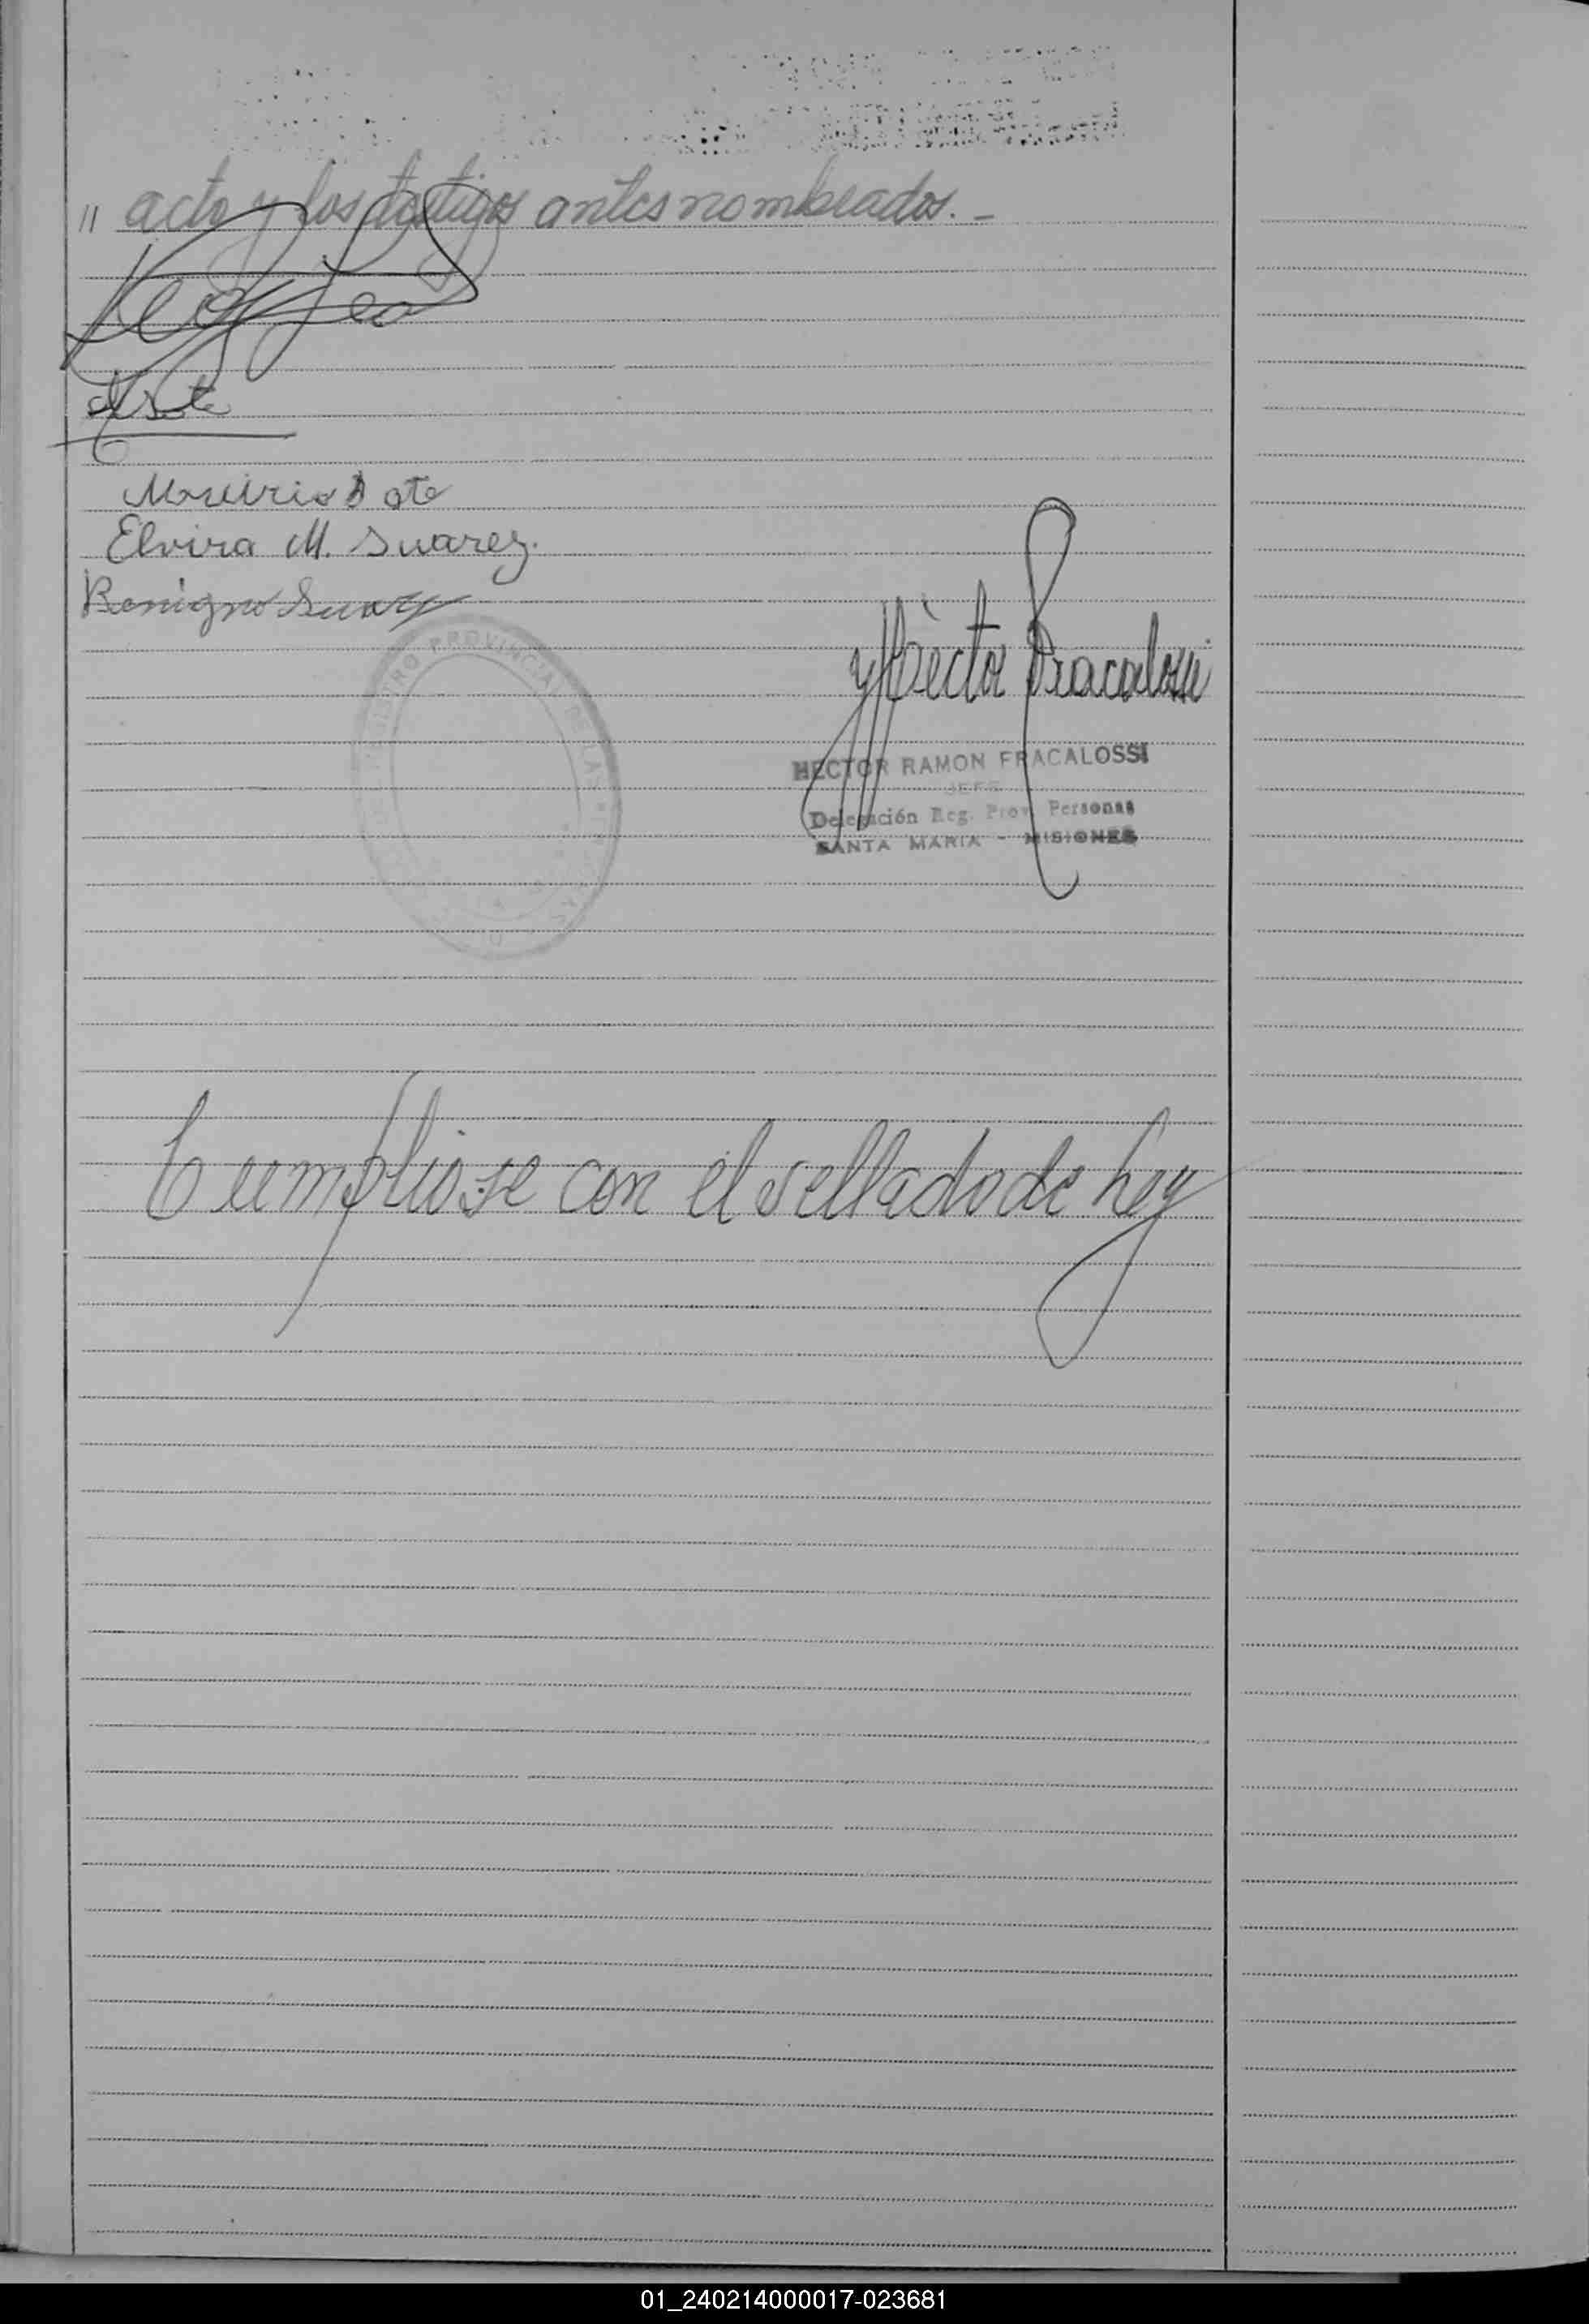 " acto y los testigos antes nombrados. -
Soto
Elvira M. Suarez.
Benigno Suarez
Hèctor Fracalossi
REGISTRO PROVINCIAL DE LAS PERSONAS
HECTOR RAMON FRACALOSSI
JEFE
Delegación Reg. Prov. Personas
SANTA MARIA - MISIONES
Cumpliose con el sellado de ley
01_240214000017-023681